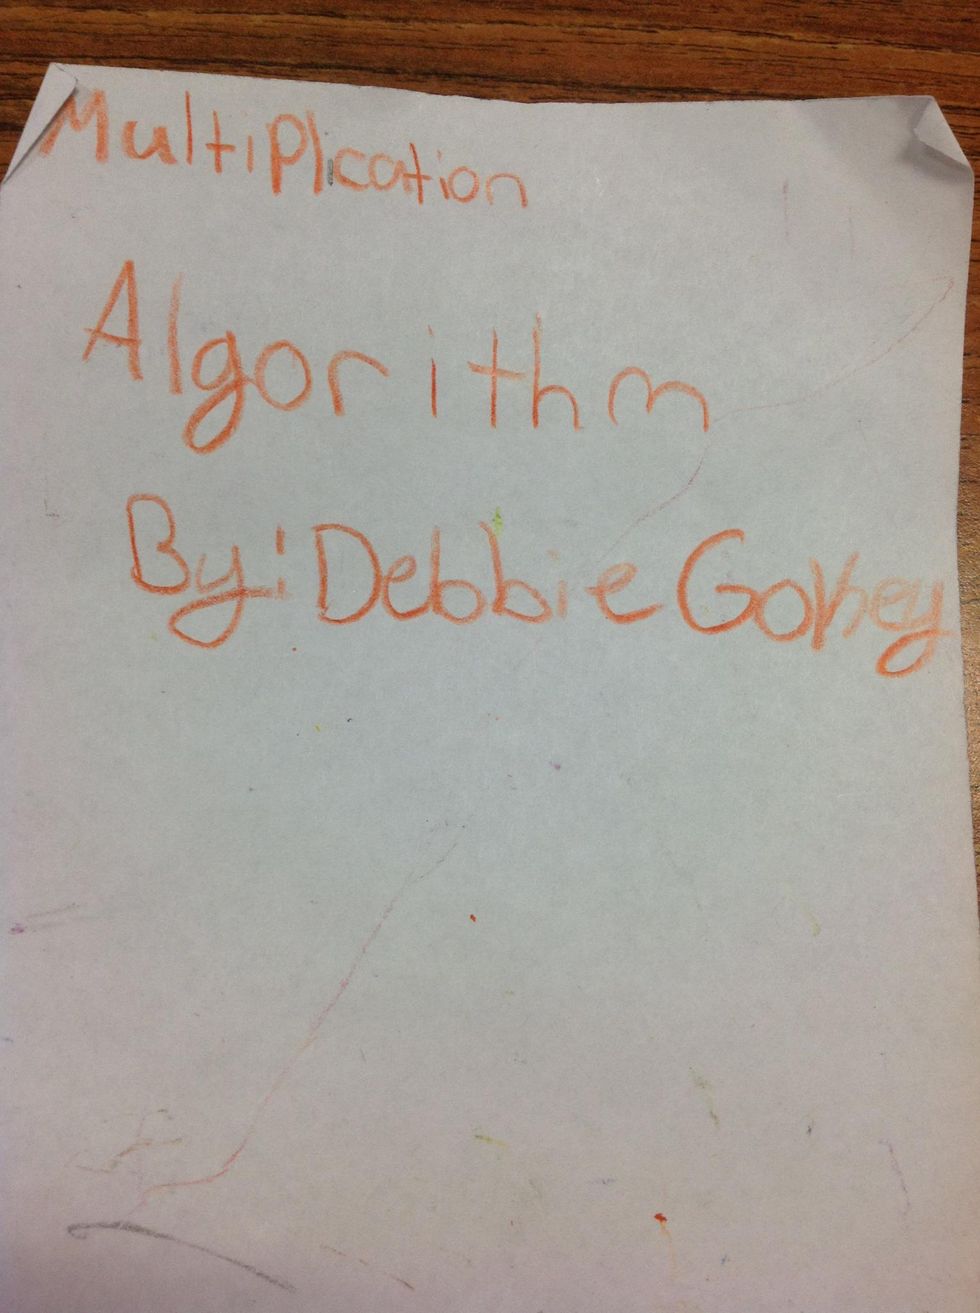 Multiplication
Algorithm
By: Debbie